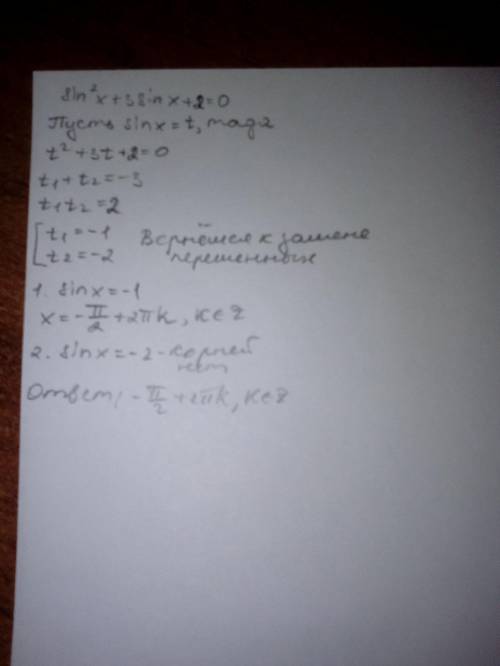 sin²x+3sinx+2=0
Пусть sinx=t, тогда
t²+3t+2=0
t₁+t₂=-3
t₁t₂=2
[t₁=-1
t₂=-2
Вернёмся к замене
переменных
1. sinx=-1
x=-π/2+2πk, k∈Z
2. sinx=-2-корней
нет
Ответ: -π/2+2πk, k∈Z